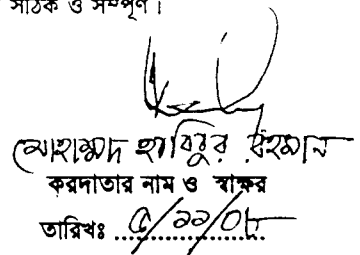 সঠিক ও সম্পূর্ণ।
মোহাম্মদ হাবিবুর রহমান
করদাতার নাম ও স্বাক্ষর
তারিখঃ ৫/১১/০৮